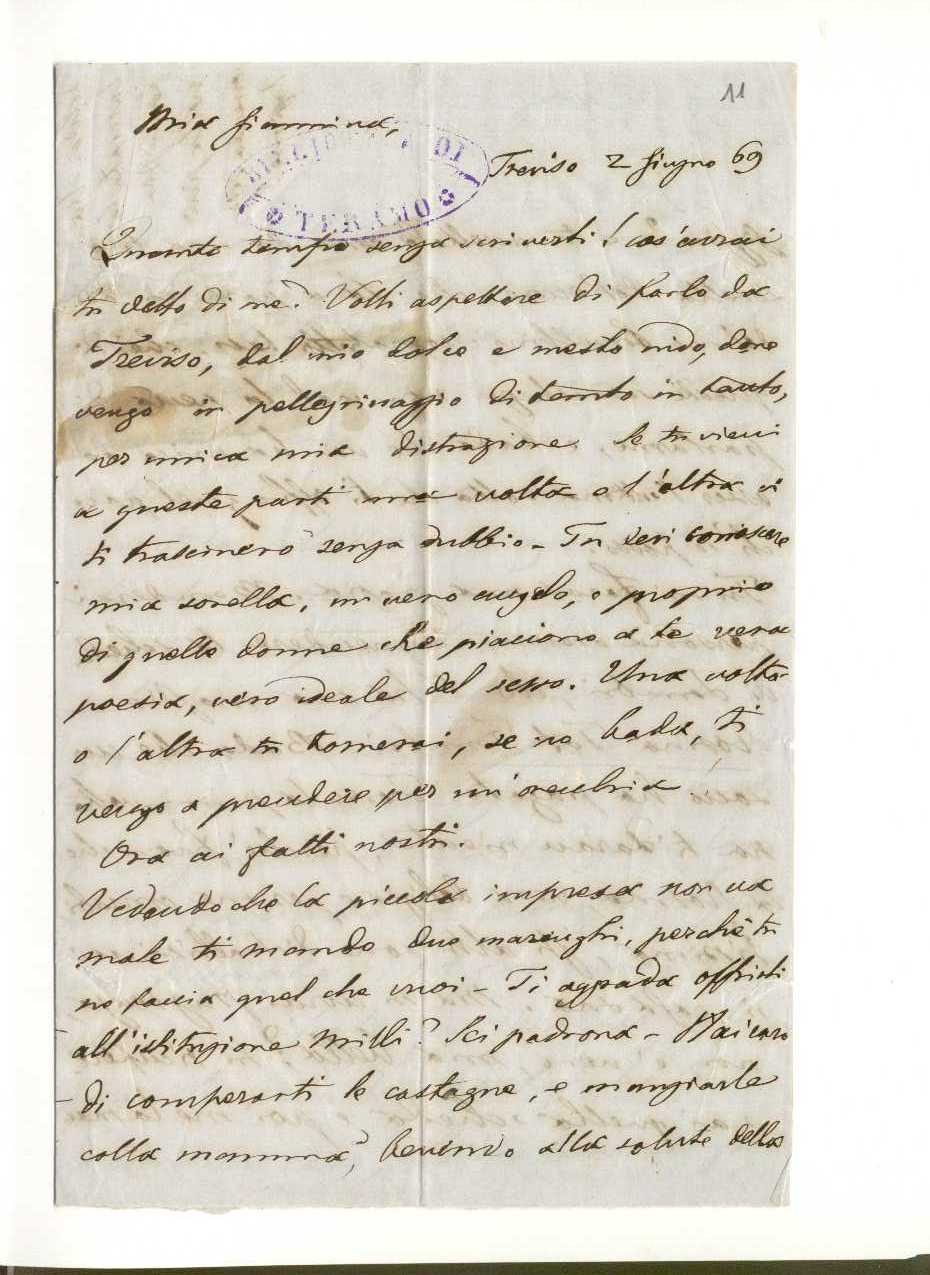 11
Mia Giannina,
DI
TERAMO
Treviso 2 Giugno 69
Quanto tempo senza scriverti! cos'avrai
tu detto di me? Volli aspettare di farlo da
Treviso, dal mio dolce e mesto nido, dove
vengo in pellegrinaggio di tanto in tanto,
per unica mia distrazione. Se tu vieni
a queste parti una volta o l'altra vi
ti trascinerò senza dubbio - Tu devi conoscere
mia sorella, un vero angelo, e proprio
di quelle donne che piacciono a te vera
poesia, vero ideale del sesso. Una volta
o l'altra tu tornerai, se no bada, ti
vengo a prendere per un'orecchia!
Ora ai fatti nostri.
Vedendo che la piccola impresa non va
male ti mando due marenghi, perchè tu
ne faccia quel che vuoi - Ti aggrada offrirli
all'istituzione Milli? Sei padrona - Hai caro
di comperarti le castagne, e mangiarle
colla mamma, bevendo alla salute della